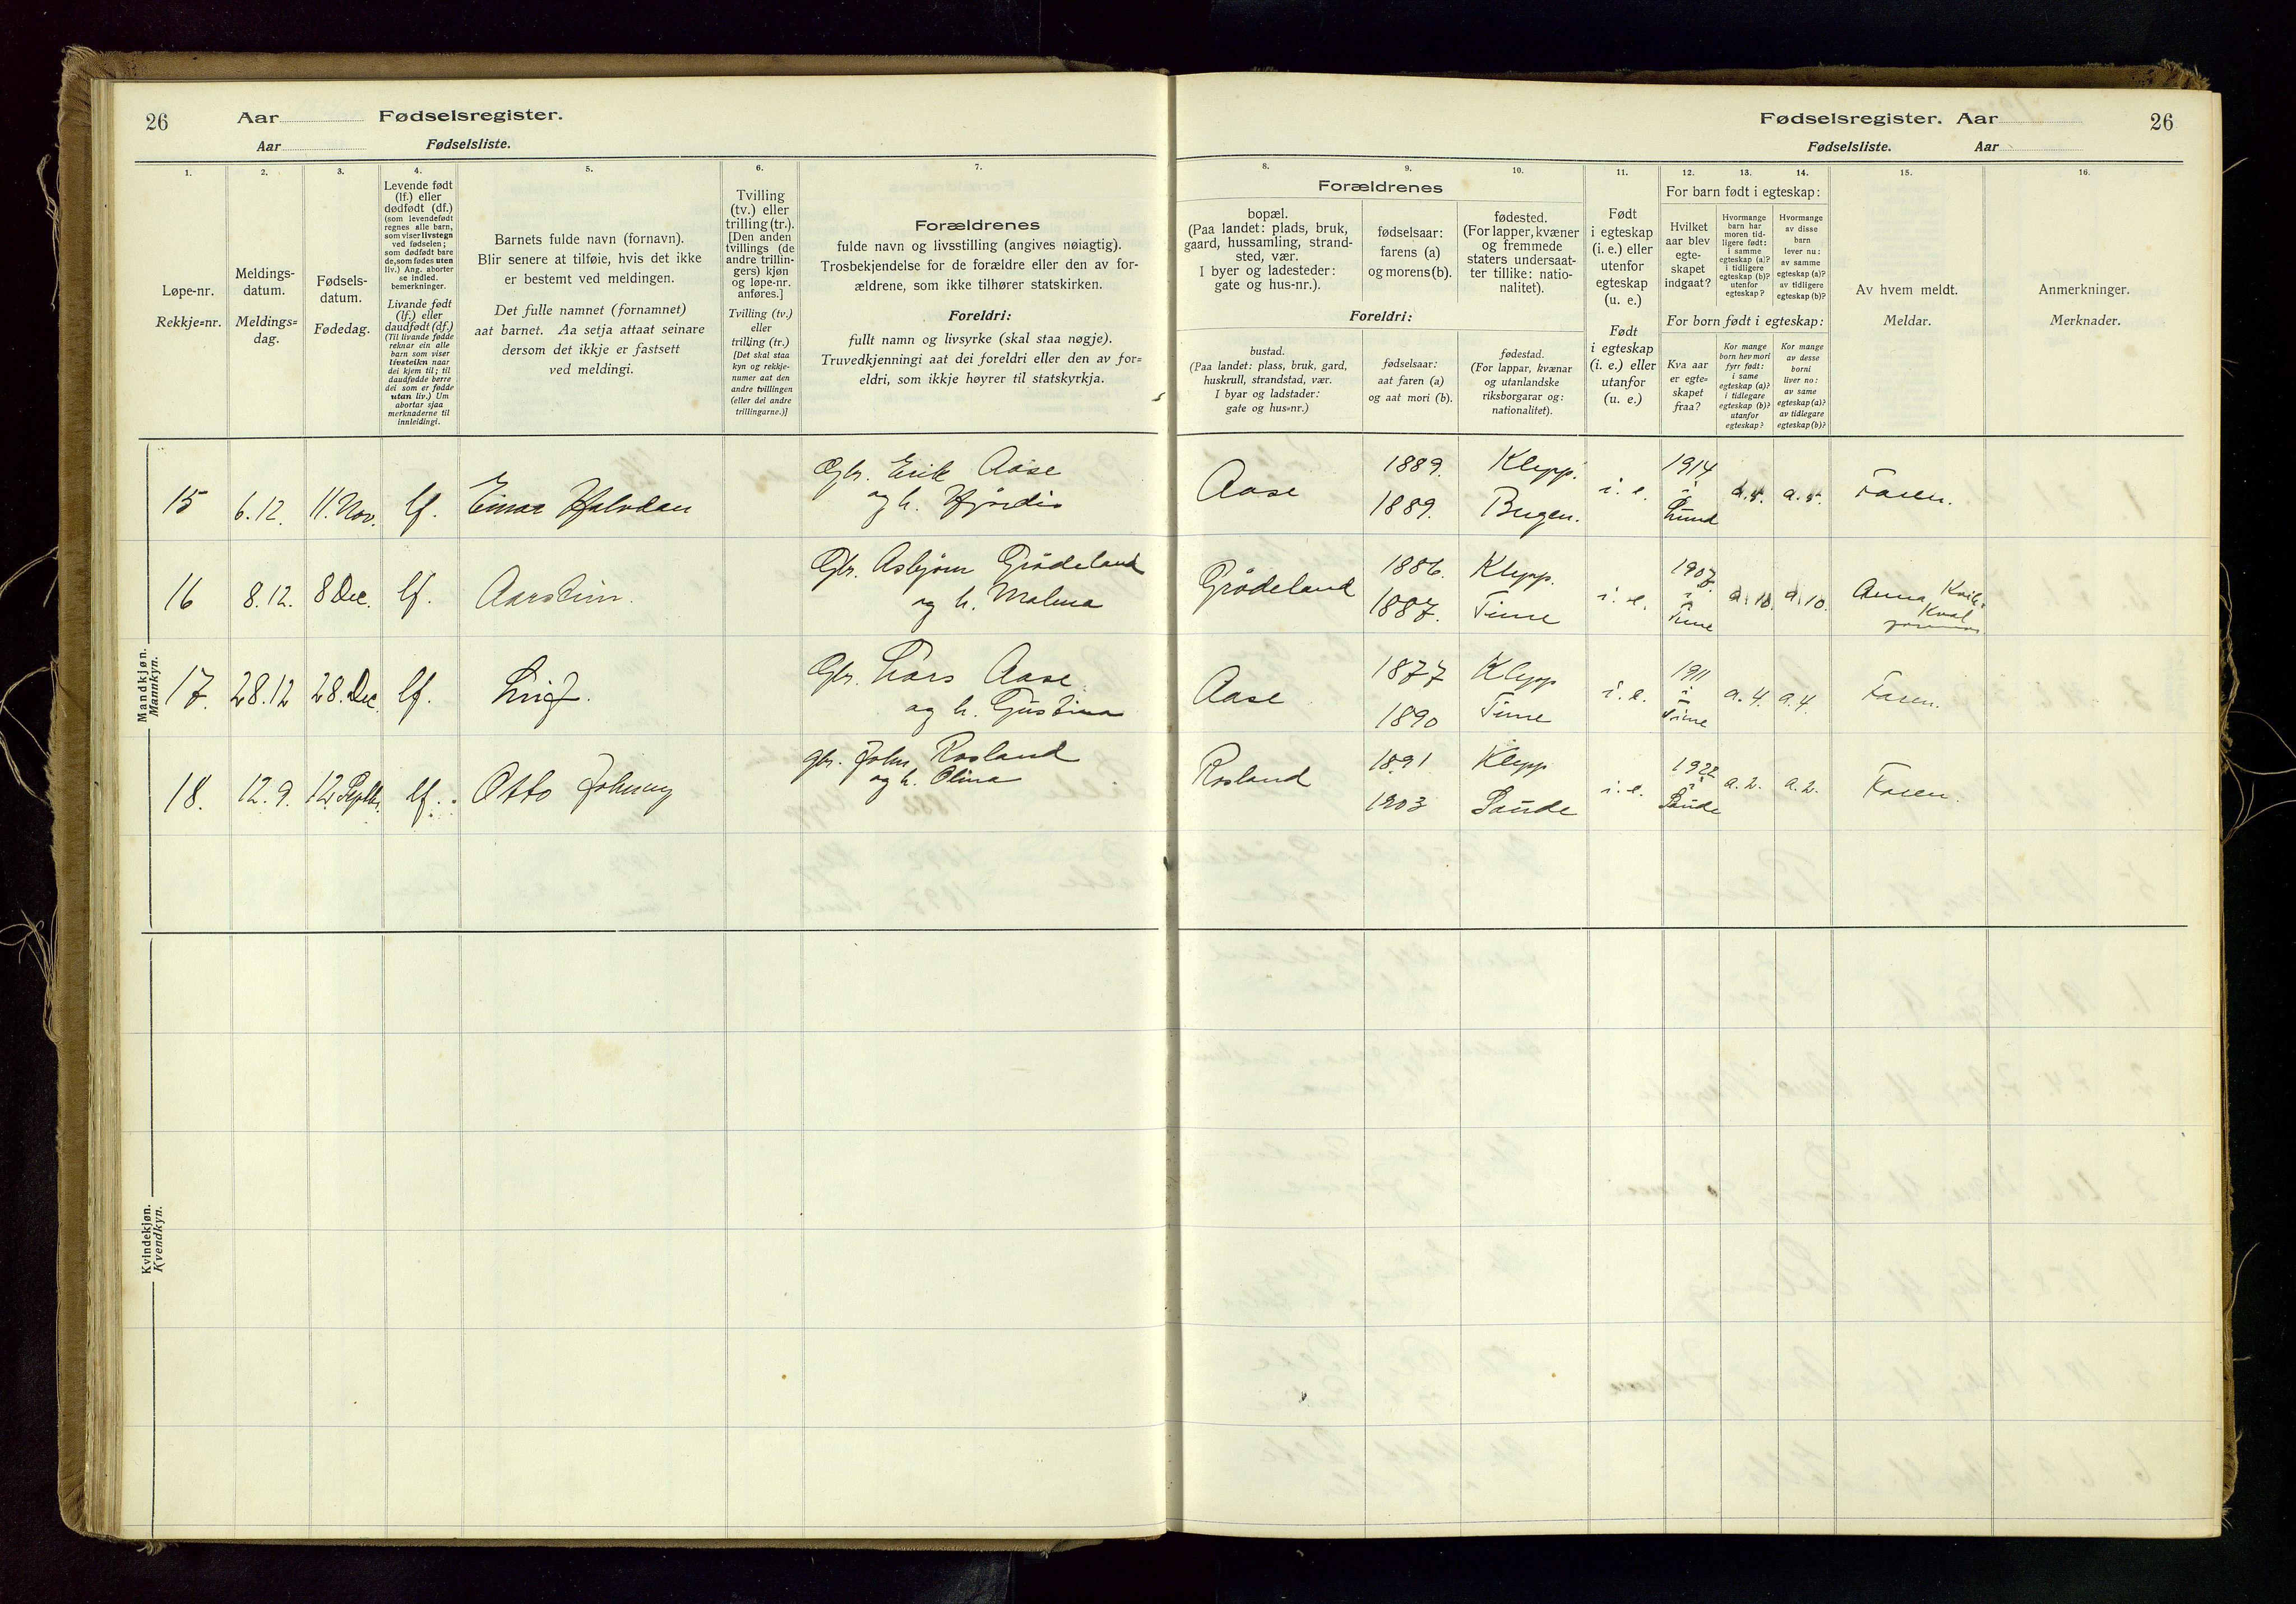 26
Aar
Fødselsregister.
Aar
Fødselsliste.
1.
Løpe-nr.
Rekkje=nr.
2.
Meldings-
datum.
Meldings=
dag.
3.
Fødsels-
datum.
Fødedag.
4.
Levende født
(lf.) eller
dødfødt (df.)
(som levendefødt
regnes alle barn,
som viser livstegn
ved fødselen;
som dødfødt bare
de, som fødes uten
liv.) Ang. aborter
se indled.
bemerkninger.
Livande født
(lf.) eller
daudfødt (df.)
(Til livande fødde
reknar ein alle
barn som viser
livsteikn naar
dei kjem til; til
daudfødde berre
dei som er fødde
utan liv.) Um
abortar sjaa
merknaderne til
innleidingi.
5.
Barnets fulde navn (fornavn).
Blir senere at tilføie, hvis det ikke
er bestemt ved meldingen.
Det fulle namnet (fornamnet)
aat barnet. Aa setja attaat seinare
dersom det ikkje er fastsett
ved meldingi.
6.
Tvilling
(tv.) eller
trilling (tr.).
[Den anden
tvillings (de
andre trillin-
gers) kjøn
og løpe-nr.
anføres.]
Tvilling (tv.)
eller
trilling (tr.)
[Det skal staa
kyn og rekkje-
numer aat den
andre tvillingen
(eller dei andre
trillingarne.)]
7.
Forældrenes
fulde navn og livsstilling (angives nøiagtig).
Trosbekjendelse for de forældre eller den av for-
ældrene, som ikke tilhører statskirken.
Foreldri:
fullt namn og livsyrke (skal staa nøgje).
Truvedkjenningi aat dei foreldri eller den av for=
eldri, som ikkje høyrer til statskyrkja.
Mandkjøn.
Mannkyn.
15 6.12. 11. Nov. lf. Einar Halvdan Gbr. Erik Aase
og h. Hjørdis
16 8.12. 8 Dec. lf. Gbr. Asbjørn Grødeland
og h. Malena
17. 28.12 28. Dec. lf. Leif. Gbr. Lars Aase
og h. Gustina
18. 12.9. 12 Septbr. lf. Otto Johnny gbr. John Rosland
og h. Olina
Kvindekjøn.
Kvendkyn.
Fødselsregister. Aar
26
Fødselsliste.
Aar
8.
Forældrenes
bopæl.
(Paa landet: plads, bruk,
gaard, hussamling, strand-
sted, vær.
I byer og ladesteder:
gate og hus-nr.).
Foreldri:
bustad.
(Paa landet: plass, bruk, gard,
huskrull, strandstad, vær.
I byar og ladstader:
gate og hus=nr.)
9.
fødselsaar:
farens (a)
og morens (b).
fødselsaar:
aat faren (a)
og aat mori (b).
10.
fødested.
(For lapper, kvæner
og fremmede
staters undersaat-
ter tillike: natio-
nalitet).
fødestad.
(For lappar, kvænar
og utanlandske
riksborgarar og:
nationalitet).
11.
Født
i egteskap
(i. e.) eller
utenfor
egteskap
(u. e.)
Født
i egteskap
(i. e.) eller
utanfor
(u. e.)
12. 13. 14.
For barn født i egteskap:
Hvilket
aar blev
egte-
skapet
indgaat?
Hvormange
barn har
moren tid-
ligere født:
i samme
egteskap (a)?
i tidligere
egteskap (b)?
utenfor
egteskap?
Hvormange
av disse
barn
lever nu:
av samme
egteskap (a)?
av tidligere
egteskap (b)?
For born født i egteskap:
Kva aar
er egte=
skapet
fraa?
Kor mange
born hev mori
fyrr født:
i same
egteskap (a)?
i tidlegare
egteskap (b)?
utanfor
egteskap?
Kor mange
av desse
borni
liver no:
av same
egteskap (a)?
av tidlegare
egteskap (b)?
15.
Av hvem meldt.
Meldar.
16.
Anmerkninger.
Merknader.
Aase 1889. Klepp. i. e. 1914 a. 5. a. 5. Faren.
1889. i Lund
Grødeland 1886. Klepp. i. e. 1907. a. 10. a. 10. Anna
1887. Time i Time
Aase 1877 Klepp i. e. 1911 a. 4. a. 4. Faren.
1890 Time i Time
Rosland 1891 Klepp i. e. 1922 a. 2. a. 2. Faren.
1903 Saude i Saude